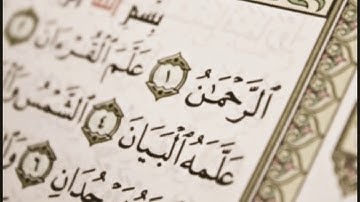 بِسْمِ ٱللَّهِ
ٱلرَّحْمَٰنُ ١ عَلَّمَ ٱلْقُرْءَانَ ٢
عَلَّمَهُ ٱلْبَيَانَ ٤ ٱلشَّمْسُ
يَسْجُدَانِ ٦